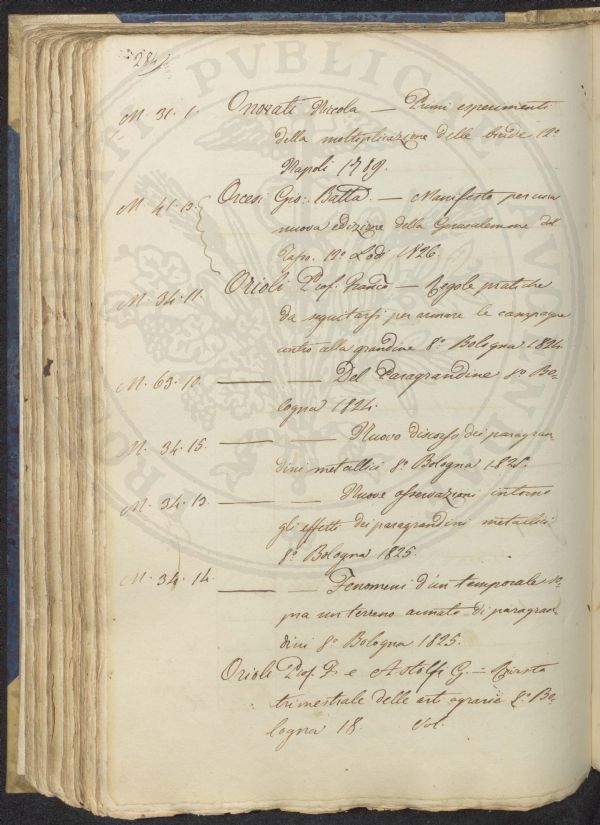 284
M. 31. 1. Onorati Nicola — Primi esperimenti
della moltiplicazione delle biade 12.º
Napoli 1789.
M. 41. 13. Orcesi Gio: Batta. — Manifesto per una
nuova edizione della Gerusalemme del
Tasso. 12º Lodi 1826.
M. 34. 11. Orioli Prof. Franco — Regole pratiche
da seguitarsi per armare le campagne
contro alla grandine 8º Bologna 1824.
M. 63. 10. — — Del Paragrandine 8º Bo-
logna 1824.
M. 34. 15. — — Nuovo discorso dei paragran
dini metallici 8º Bologna 1825.
M. 34. 13. — — Nuove osservazioni intorno
gli effetti dei paragrandini metallici
8º Bologna 1825.
M. 34. 14. — — Fenomeni d'un temporale so
pra un terreno armato di paragran
dini 8º Bologna 1825.
Orioli Prof. F. e Astolfi G. = Rivista
trimestrale delle arti agrarie 8º Bo-
logna 18. Vol.
PVBLICAE